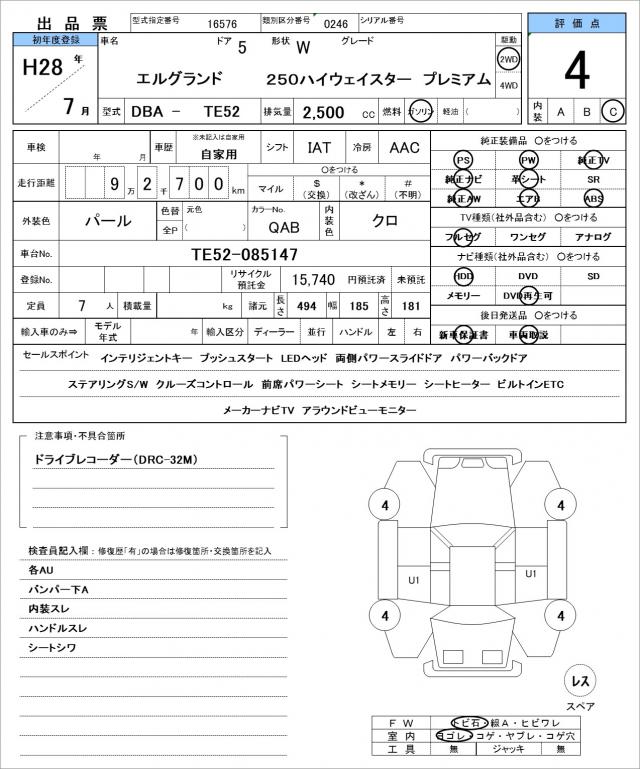 出品票 型式指定番号 16576 類別区分番号 0246 シリアル番号 評価点
初年度登録 車名 ドア 5 形状 W グレード 駆動
H28 年 エルグランド 250ハイウェイスター プレミアム 2WD 4
7 月 4WD
型式 DBA － TE52 排気量 2,500 CC 燃料 ガソリン 軽油 （ ） 内装 A B C
車検 年 月 車歴 ※未記入は自家用 自家用 シフト IAT 冷房 AAC 純正装備品 〇をつける
走行距離 9 万 2 千 7 0 0 km マイル 〇をつける $ (交換) * (改ざん) # (不明) PS PW 純正TV
純正ナビ 革シート SR
外装色 パール 色替 元色 全P （ ） カラーNo. QAB 内装色 クロ 純正AW エアB ABS
TV種類（社外品含む） 〇をつける
フルセグ ワンセグ アナログ
車台No. TE52-085147 ナビ種類（社外品含む） 〇をつける
登録No. リサイクル預託金 15,740 円預託済 未預託 HDD DVD SD
定員 7 人 積載量 kg 諸元 長さ 494 幅 185 高さ 181 メモリー DVD再生可
後日発送品 〇をつける
輸入車のみ⇒ モデル年式 年 輸入区分 ディーラー 並行 ハンドル 左 右 新車保証書 車両取説
セールスポイント インテリジェントキー プッシュスタート LEDヘッド 両側パワースライドドア パワーバックドア
ステアリングS/W クルーズコントロール 前席パワーシート シートメモリー シートヒーター ビルトインETC
メーカーナビTV アラウンドビューモニター
注意事項・不具合箇所
ドライブレコーダー（DRC-32M）
検査員記入欄：修復歴「有」の場合は修復箇所・交換箇所を記入
各AU
バンパー下A
内装スレ
ハンドルスレ
シートシワ
4 4
U1 U1
4 4
レス
スペア
ＦＷ トビ石・線A・ヒビワレ
室内 ヨゴレ・コゲ・ヤブレ・コゲ穴
工具 無 ジャッキ 無